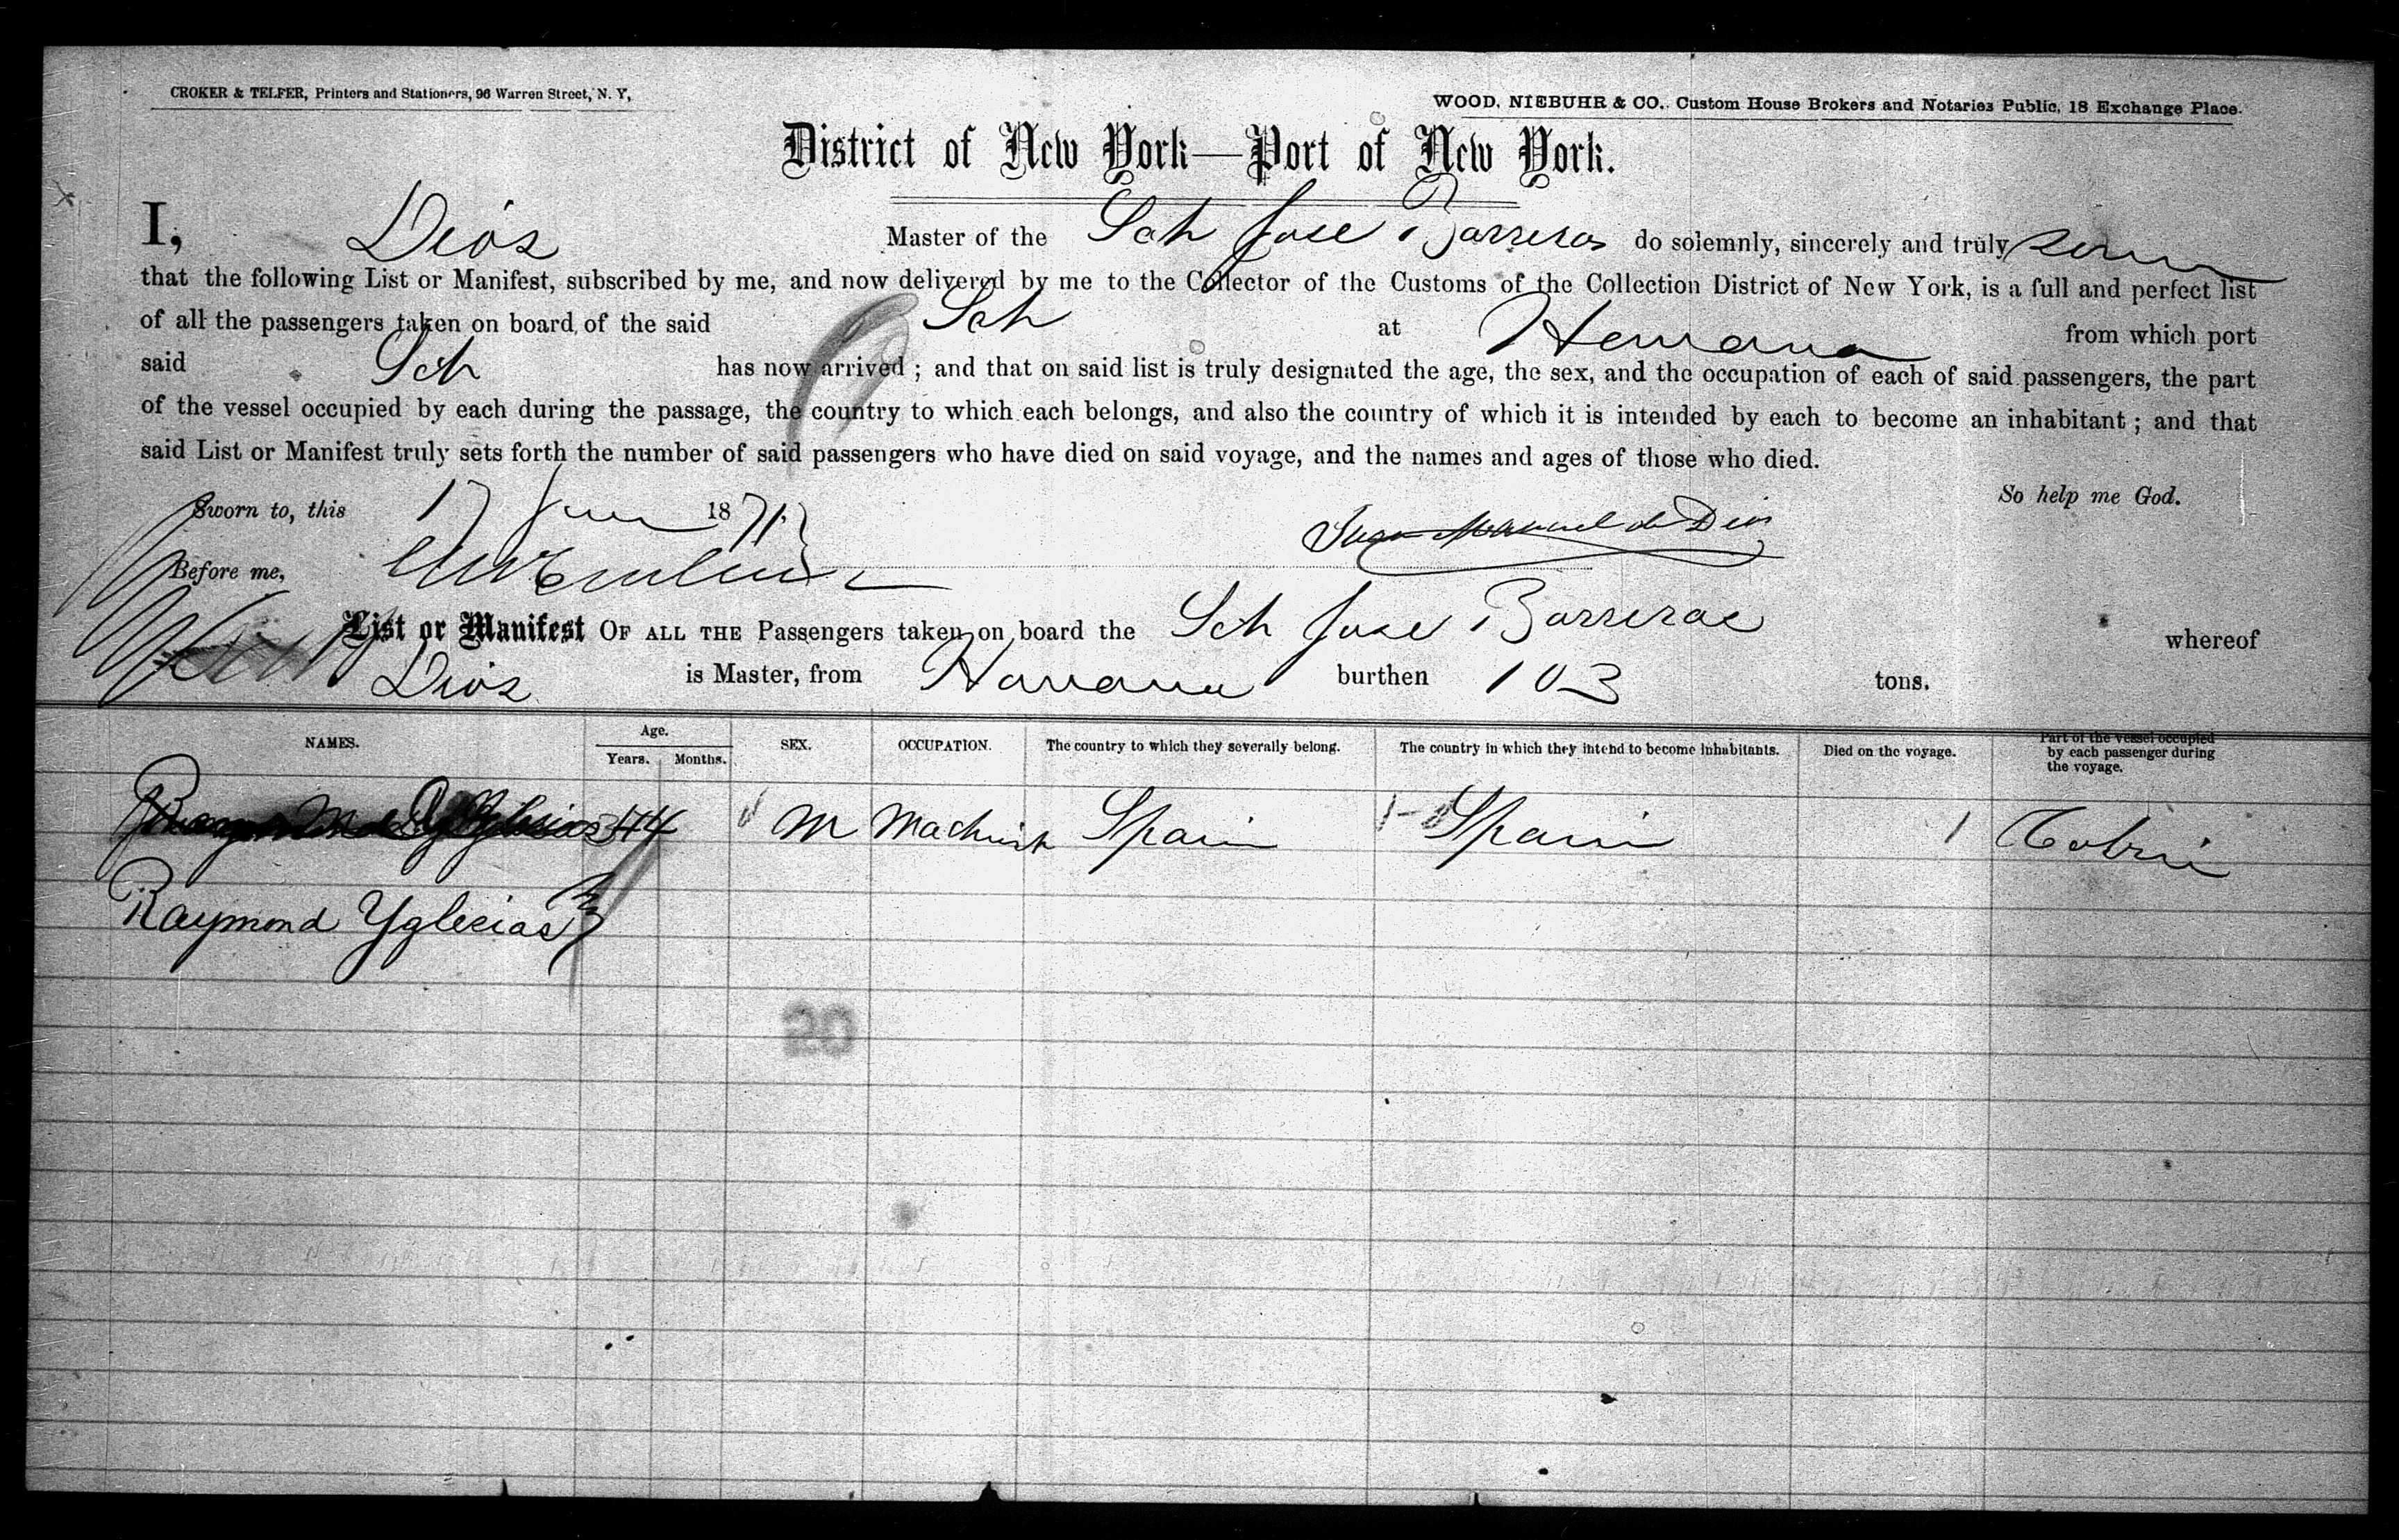 CROKER & TELFER, Printers and Stationers, 96 Warren Street, N. Y,
WOOD, NIEBUHR & CO., Custom House Brokers and Notaries Public, 18 Exchange Place.
District of New York—Port of New York.
I, Dios Master of the Sch Jose Barreras do solemnly, sincerely and truly
that the following List or Manifest, subscribed by me, and now delivered by me to the Collector of the Customs of the Collection District of New York, is a full and perfect list
of all the passengers taken on board of the said Sch at Havana from which port
said Sch has now arrived ; and that on said list is truly designated the age, the sex, and the occupation of each of said passengers, the part
of the vessel occupied by each during the passage, the country to which each belongs, and also the country of which it is intended by each to become an inhabitant ; and that
said List or Manifest truly sets forth the number of said passengers who have died on said voyage, and the names and ages of those who died.
So help me God.
Sworn to, this 17 1871
Juan Manuel de Dios
Before me,
List or Manifest OF ALL THE Passengers taken on board the Sch Jose Barreras whereof
Dios is Master, from Havana burthen 103 tons.
NAMES. Age. Years. Months. SEX. OCCUPATION. The country to which they severally belong. The country in which they intend to become inhabitants. Died on the voyage. Part of the vessel occupied by each passenger during the voyage.
44 M Machinist Spain Spain 1 Cabin
Raymond Yglecias